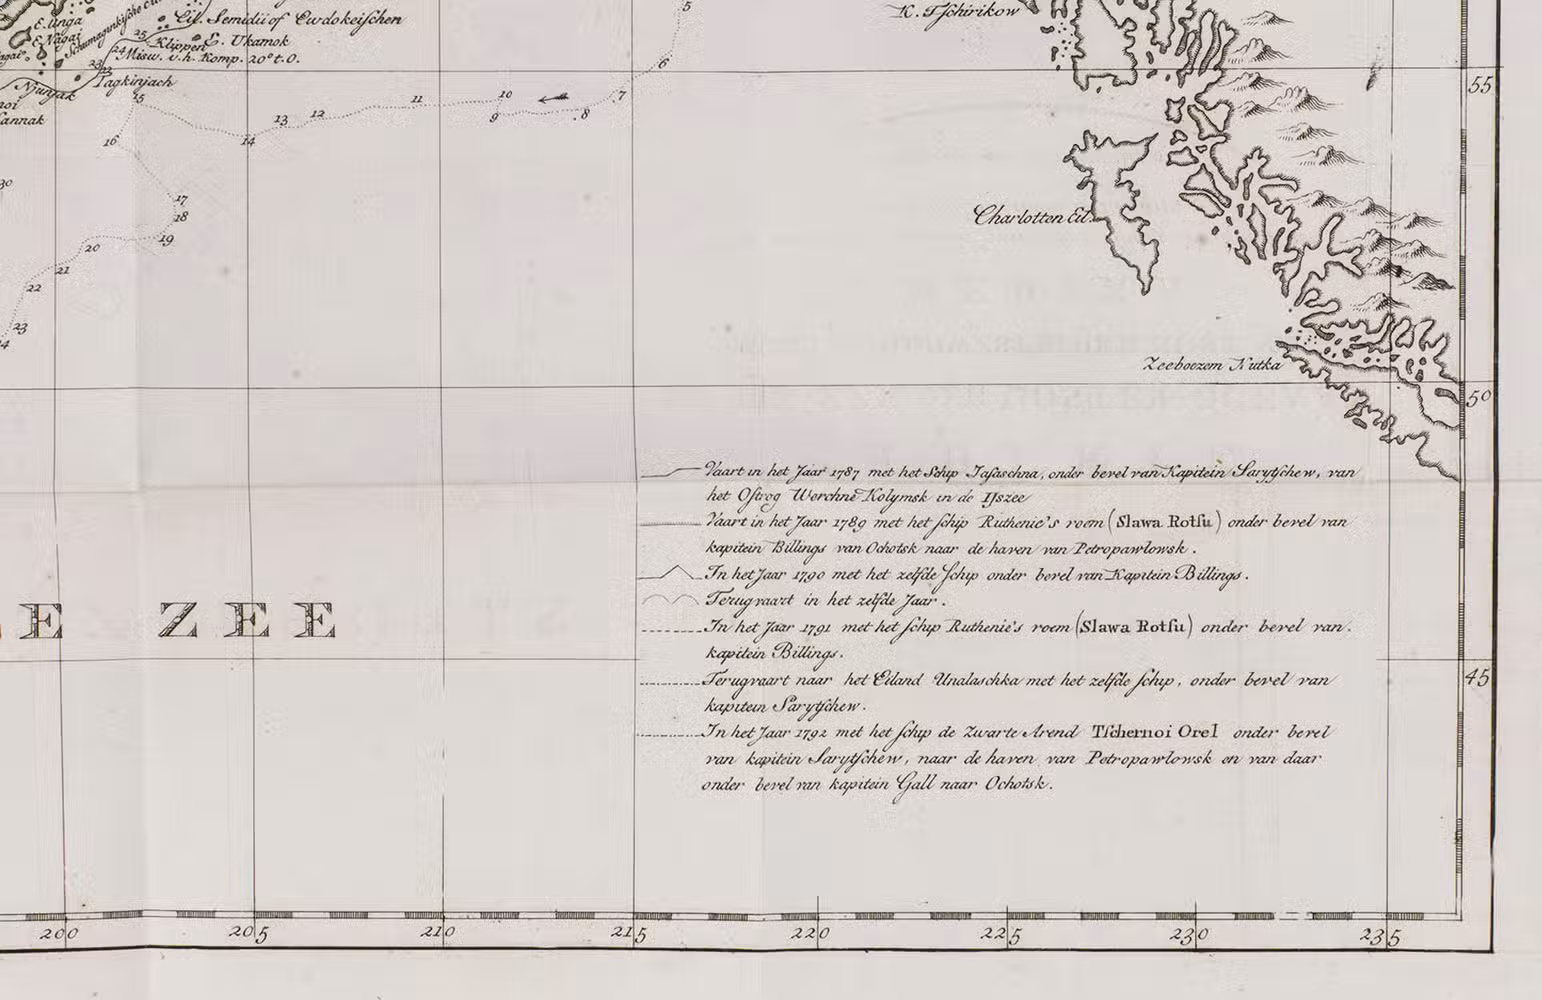 K. Tſchirikow
E. Unga
E. Nagai
Schumaginkiſche
Eil. Semidii of Ewdokeiſchen
25 Klippen E. Ukamok
24 Misw. v.h. Komp. 20° t.O.
23
Tagkinjach
Njunjak
annak
5
6
7
8
9
10
11
12
13
14
15
16
17
18
19
20
21
22
23
30
55
Charlotten Eil.
Zeeboezem Nutka
50
Vaart in het Jaar 1787 met het Schip Jaſaschna, onder bevel van Kapitein Sarytſchew, van
het Oſtrog Werchne Kolymsk in de IJszee
Vaart in het Jaar 1789 met het ſchip Ruthenie's roem (Slawa Rotſu) onder bevel van
kapitein Billings van Ochotsk naar de haven van Petropawlowsk.
In het Jaar 1790 met het zelfde ſchip onder bevel van Kapitein Billings.
Terugvaart in het zelfde Jaar.
In het Jaar 1791 met het ſchip Ruthenie's roem (Slawa Rotſu) onder bevel van
kapitein Billings.
Terugvaart naar het Eiland Unalaschka met het zelfde ſchip, onder bevel van
kapitein Sarytſchew.
In het Jaar 1792 met het ſchip de Zwarte Arend Tſchernoi Orel onder bevel
van kapitein Sarytſchew, naar de haven van Petropawlowsk en van daar
onder bevel van kapitein Gall naar Ochotsk.
E ZEE
45
200 205 210 215 220 225 230 235